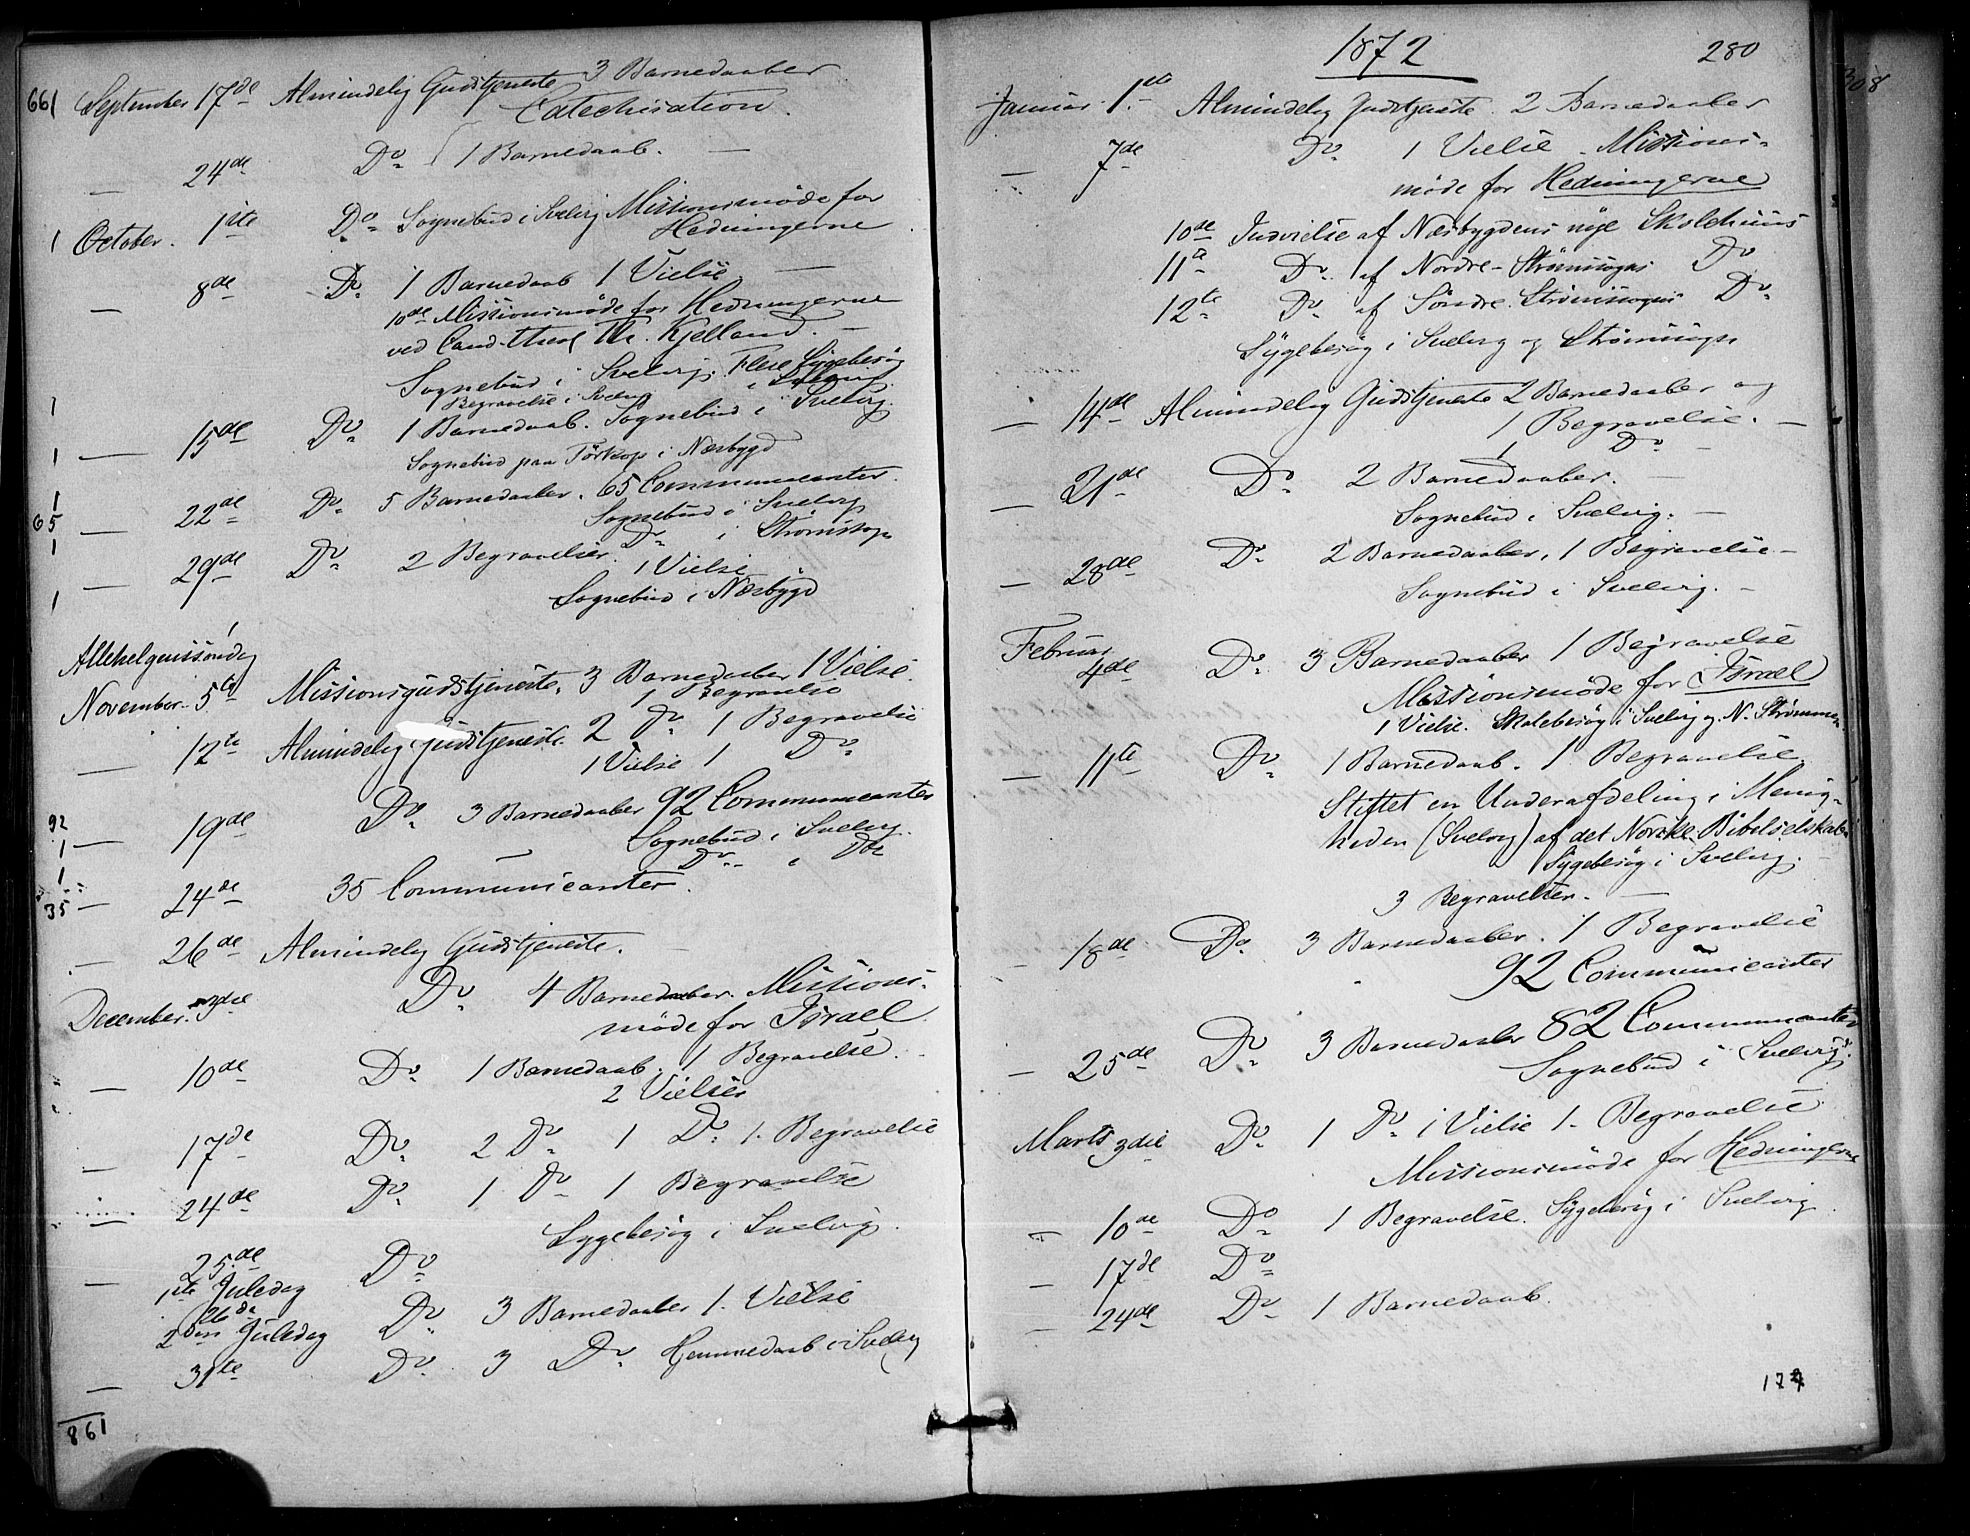 661 September 17de Almindelig Gudstjeneste 3 Barnedaaber
Catechisation.
— 24de Do 1 Barnedaab. —
1 October. 1ste Do Sognebud i Svelvig Missionsmøde for
Hedningerne.
— 8de Do 1 Barnedaab 1 Vielse —
10de Missionsmøde for Hedningerne
ved Cand. Theol Th. Kjelland. —
1 Sognebud i Svelvig. Flere Sygebesøg
i Svelvig.
Begravelse i Svelvig
1 — 15de Do 1 Barnedaab. Sognebud i Svelvig.
1 Sognebud paa Tørkop i Næsbygd
65 — 22de Do 5 Barnedaaber. 65 Communicanter.
Sognebud i Svelvig
1 Do i Strømsogn
— 29de Do 2 Begravelser. 1 Vielse
1 Sognebud i Næsbygd
Allehelgenssøndag
November. 5te Missionsgudstjeneste. 3 Barnedaaber 1 Vielse.
1 Begravelse
— 12te Almindelig Gudstjeneste. 2 Do 1 Begravelse
1 Vielse 1 Do
92 — 19de Do 3 Barnedaaber 92 Communicanter
1 Sognebud i Svelvig.
1 Do i Do
35 — 24de 35 Communicanter.
— 26de Almindelig Gudstjeneste. —
December. 3die Do 4 Barnedaaber. Missions-
møde for Israel
— 10de Do 1 Barnedaab. 1 Begravelse.
2 Vielser
— 17de Do 2 Do 1 Do 1. Begravelse
— 24de Do 1 Do 1 Begravelse
Sygebesøg i Svelvig.
— 25de Do
1ste Juledag
26de
2den Juledag Do 3 Barnedaaber 1. Vielse
— 31te Do 3 Do Hjemmedaab i Svelvig
861
1872 280
308
Januar. 1ste Almindelig Gudstjeneste. 2 Barnedaaber
— 7de Do 1 Vielse. Missions-
møde for Hedningerne
10de Indvielse af Næsbygdens nye Skolehuus
11te Do af Nordre-Strømsogns Do
12te Do af Søndre Strømsogns Do
Sygebesøg i Svelvig og Strømsogn
— 14de Almindelig Gudstjeneste 2 Barnedaaber og
1 Begravelse. —
1 Do —
— 21de Do 2 Barnedaaber. —
Sognebud i Svelvig. —
— 28de Do 2 Barnedaaber, 1 Begravelse —
Sognebud i Svelvig. —
Februar
4de Do 3 Barnedaaber 1 Begravelse
Missionsmøde for Israel
1 Vielse. Skolebesøg i Svelvig og N. Strømmen
— 11te Do 1 Barnedaab. 1 Begravelse.
Stiftet en Underafdeling i Menig-
heden (Svelvig) af det Norske Bibelselskab.
Sygebesøg i Svelvig. —
3 Begravelser. —
— 18de Do 3 Barnedaaber. 1 Begravelse
92 Communicanter
— 25de Do 3 Barnedaaber 82 Communicanter
Sognebud i Svelvig.
Marts 3die Do 1 Do 1 Vielse 1. Begravelse
Missionsmøde for Hedningerne
— 10de Do 1 Begravelse. Sygebesøg i Svelvig.
— 17de Do
— 24de Do 1 Barnedaab.